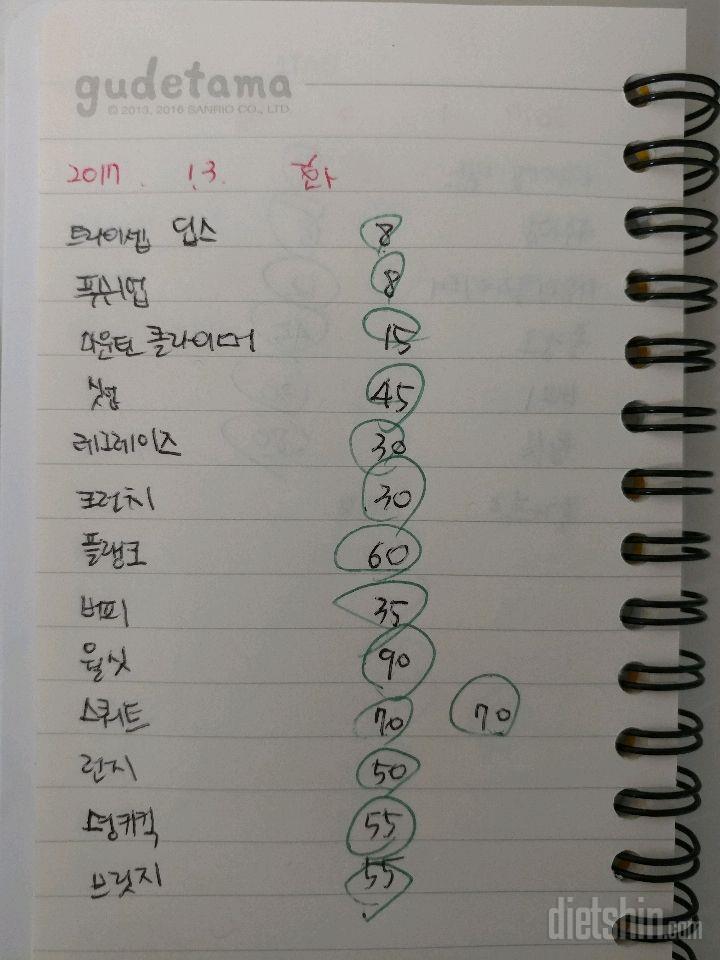 gudetama
© 2013, 2016 SANRIO CO., LTD.
2017. 1.3. 화
트라이셉 딥스 8
푸쉬업 8
마운틴 클라이머 15
싯업 45
레그레이즈 30
크런치 30
플랭크 60
버피 35
월싯 90
스쿼트 70 70
런지 50
덩키킥 55
브릿지 55
dietshin.com